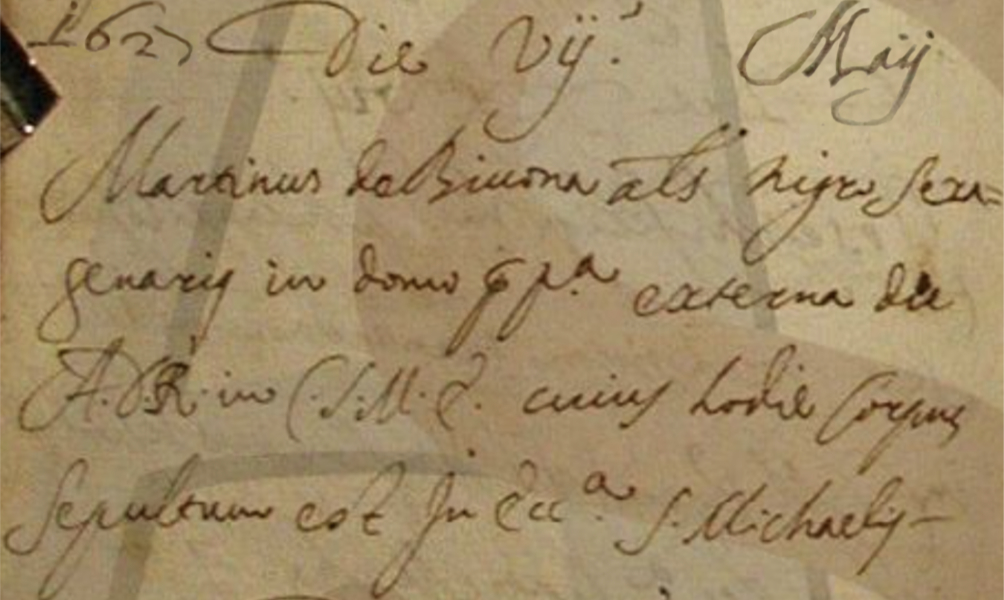 1627 Die Vij Maij
Martinus de Biuona als nigro sexa=
genarius in domo ppa externa die
A. D. R. in C. S. M. E. cuius hodie Corpus
Sepultum est In Ecca S. Michaelis